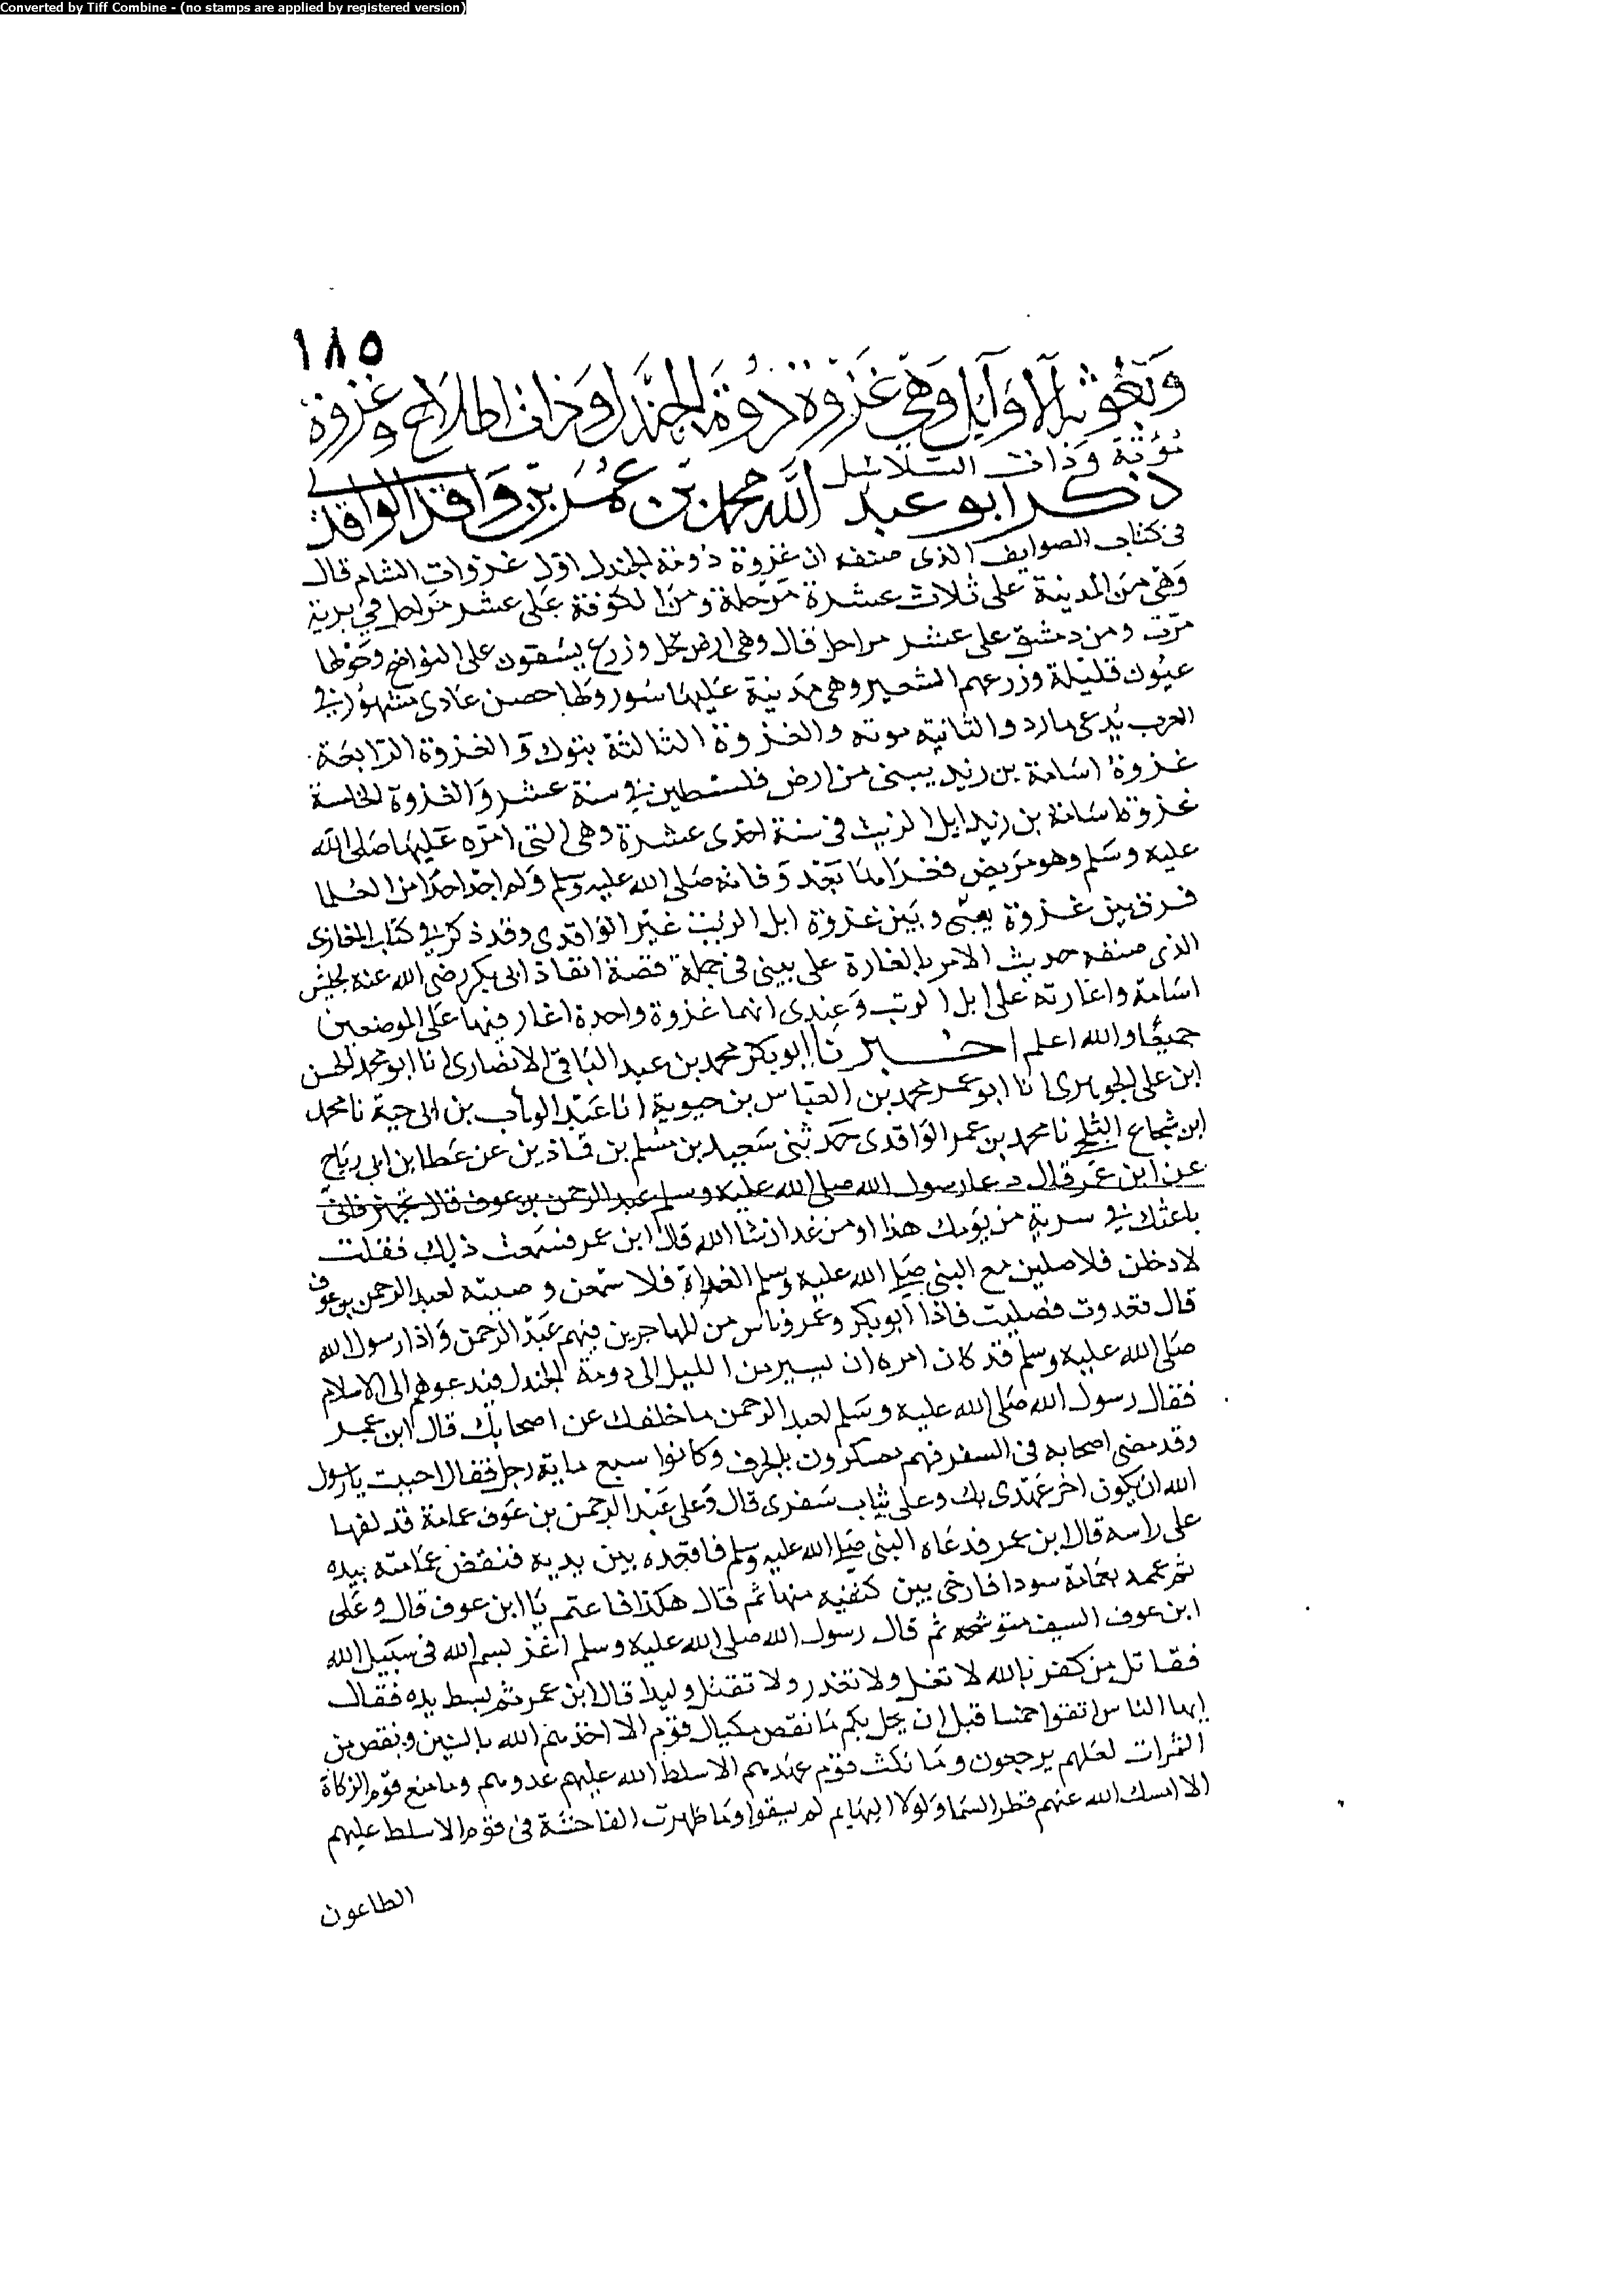 Converted by Tiff Combine - (no stamps are applied by registered version)
١٨٥
وبعوثه الاوايل وهي غزوة دومة الجندل وذات اطلاح وغزوة
مؤتة وذات السلاسل
ذكر ابو عبد الله محمد بن عمر بن واقد الواقدي
في كتاب الصوايف الذى صنفه ان غزوة دومة الجندل اول غزوات الشام قال
وهي من المدينة على ثلاث عشرة مرحلة ومن الكوفة على عشر مراحل في برية
مرت ومن دمشق على عشر مراحل قال وهي ارض نخل وزرع يسقون على النواضح وحولها
عيون قليلة وزرعهم الشعير وهي مدينة عليها سور ولها حصن عادى مشهور في
العرب يدعى مارد والثانية موته والغزوة الثالثة بتوك والغزوة الرابعة
غزوة اسامة بن زيد يبنى من ارض فلسطين في سنة عشر والغزوة الخامسة
غزوة اسامة بن زيد ابل الزيت في سنة احدى عشرة وهي التي امره عليها صلى الله
عليه وسلم وهو مريض فغزاها بعد وفاته صلى الله عليه وسلم ولم اجد احدا من العلما
فرق بين غزوة يبنى وبين غزوة ابل الزيت غير الواقدى وقد ذكر في كتاب المغازى
الذى صنفه حديث الامر بالغارة على يبنى في جملة قصة انفاذ ابى بكر رضي الله عنه بجيش
اسامة واغارته على ابل الزيت وعندى انهما غزوة واحدة اغار فيها على الموضعين
جميعا والله اعلم اخبرنا ابو بكر محمد بن عبد الباقى الانصارى انا ابو محمد الحسن
ابن على الجوهرى انا ابو عمر محمد بن العباس بن حيوية انا عبد الوهاب بن ابى حية نا محمد
ابن شجاع الثلجي نا محمد بن عمر الواقدى حدثنى سعيد بن مسلم بن قماذين عن عطا بن ابى رباح
عن ابن عمر قال دعا رسول الله صلى الله عليه وسلم عبد الرحمن بن عوف قال تجهز فاني
باعثك في سرية من يومك هذا او من غد ان شا الله قال ابن عمر فسمعت ذلك فقلت
لادخلن فلاصلين مع النبي صلى الله عليه وسلم الغداة فلاسمعن وصيته لعبد الرحمن بن عوف
قال فغدوت فصليت فاذا ابو بكر وعمر وناس من المهاجرين فيهم عبد الرحمن واذا رسول الله
صلى الله عليه وسلم قد كان امره ان يسير من الليل الى دومة الجندل فيدعوهم الى الاسلام
فقال رسول الله صلى الله عليه وسلم لعبد الرحمن ما خلفك عن اصحابك قال ابن عمر
وقد مضى اصحابه في السفر فهم معسكرون بالجرف وكانوا سبع ماية رجل فقال احببت يا رسول
الله ان يكون اخر عهدى بك وعلى ثياب سفرى قال وعلى عبد الرحمن بن عوف عمامة قد لفها
على راسه قال ابن عمر فدعاه النبي صلى الله عليه وسلم فاقعده بين يديه فنقض عمامته بيده
ثم عممه بعمامة سودا فارخى بين كتفيه منها ثم قال هكذا فاعتم يا ابن عوف قال وعلى
ابن عوف السيف متوشحه ثم قال رسول الله صلى الله عليه وسلم اغز بسم الله في سبيل الله
فقاتل من كفر بالله لا تغل ولا تغدر ولا تقتل وليدا قال ابن عمر ثم بسط يده فقال
ايها الناس اتقوا خمسا قبل ان يحل بكم ما نقص مكيال قوم الا اخذهم الله بالسنين ونقص من
الثمرات لعلهم يرجعون وما نكث قوم عهدهم الا سلط الله عليهم عدوهم وما منع قوم الزكاة
الا امسك الله عنهم قطر السما ولولا البهايم لم يسقوا وما ظهرت الفاحشة في قوم الا سلط عليهم
الطاعون